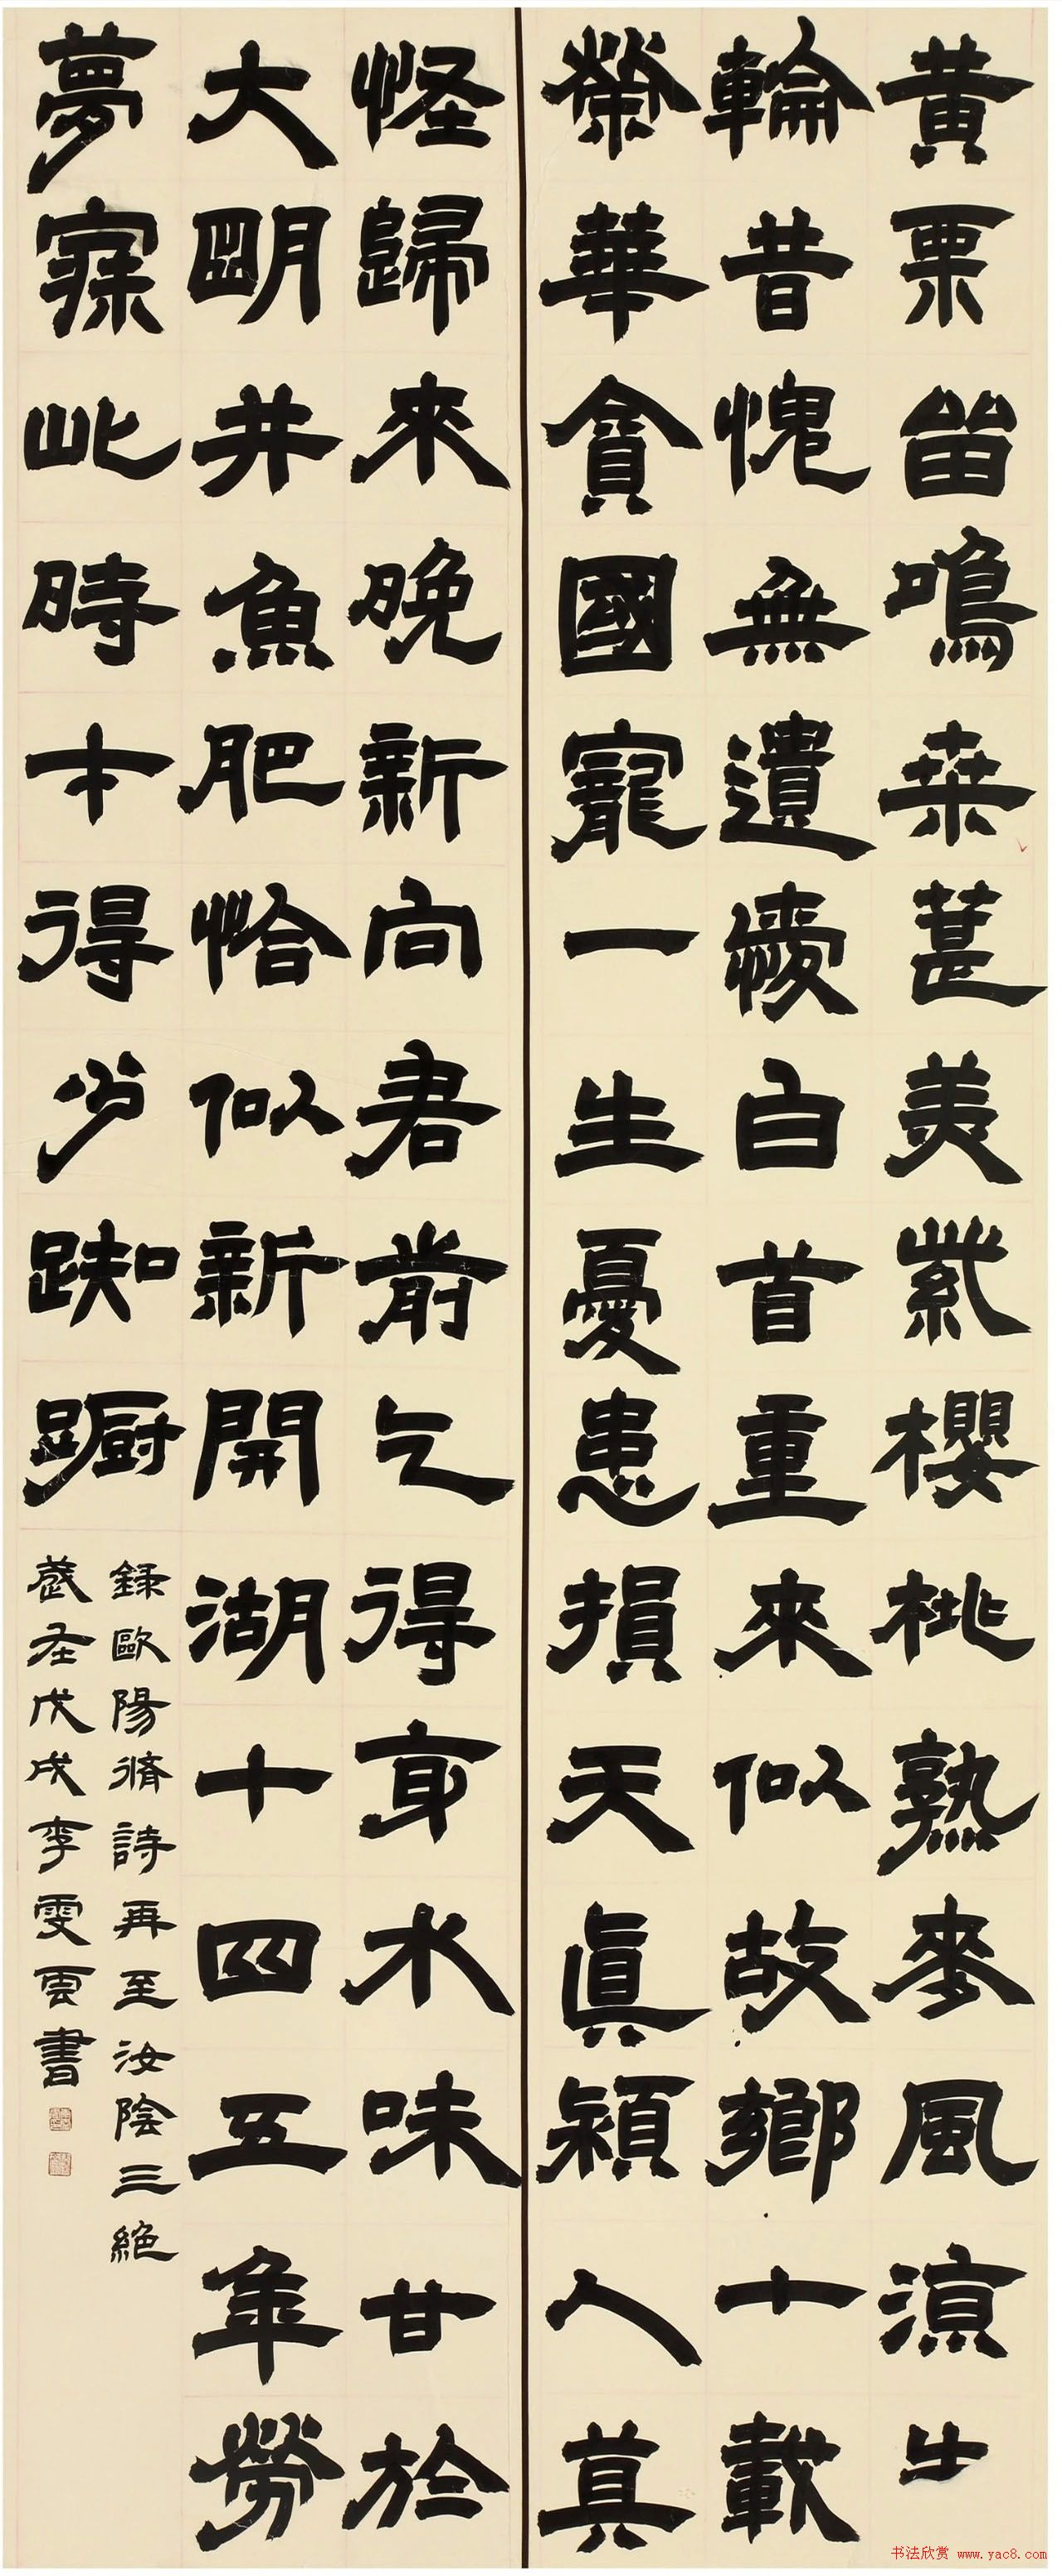 黄栗留鳴桒葚美紫櫻桃熟麥風涼朱
輪昔愧無遺懓白首重來似故鄉十載
榮華貪國寵一生憂患損天眞潁人莫
怪歸來晚新向君前乞得身水味甘於
大明井魚肥恰似新開湖十四五年勞
夢寐此時才得少踟躕
錄歐陽脩詩再至汝陰三絕
歲在戊戌李雯雲書
书法欣赏 www.yac8.com